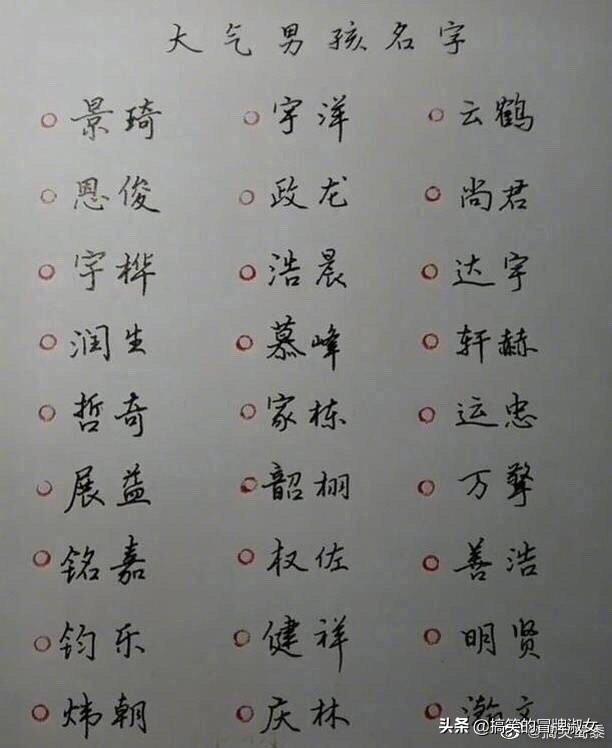 大气男孩名字
景琦 宇洋 云鹤
恩俊 政龙 尚君
宇桦 浩晨 达宇
润生 慕峰 轩赫
哲奇 家栋 运忠
展益 韶栩 万擎
铭嘉 权佐 善浩
钧乐 健祥 明贤
炜朝 庆林 瀚文
头条 @搞笑的冒牌淑女